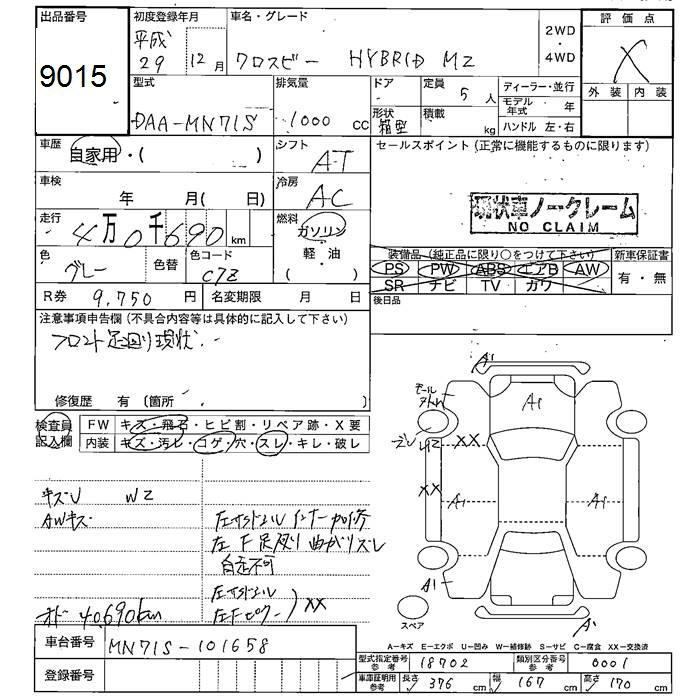 出品番号
9015
初度登録年月
平成
29 12月
車名・グレード
クロスビー HYBRID MZ
2WD
・
4WD
評価点
X
外装 内装
型式
DAA-MN71S
排気量
1000 cc
ドア
形状
箱型
定員
5人
積載
kg
ディーラー・並行
モデル年式 年
ハンドル 左・右
車歴
自家用・( )
シフト
AT
セールスポイント(正常に機能するものに限ります)
車検
年 月( 日)
冷房
AC
現状車ノークレーム
NO CLAIM
走行
4万0千690km
燃料
ガソリン
軽・油
( )
色
グレー
色替
色コード
C7Z
装備品(純正品に限り○をつけて下さい)
新車保証書
PS PW ABS エアB AW
SR ナビ TV カワ
有・無
R券 9,750円
名変期限 月 日
後日品
注意事項申告欄(不具合内容等は具体的に記入して下さい)
フロント足回り現状
修復歴 有(箇所
検査員
記入欄
FW キズ・飛石・ヒビ割・リペア跡・X要
内装 キズ・汚レ・コゲ・穴・スレ・キレ・破レ
キズU W2
AWキズ
左サイドシル インナー加修
左F足廻り曲がりズレ
自走不可
左サイドシル
左Fピラー
XX
オドー 40,690km
モール
A1
A1
ズレ
XX
XX
A1
A1
A1
A1
スペア
A−キズ E−エクボ U−凹み W−補修跡 S−サビ C−腐食 XX−交換済
車台番号 MN71S-101658
登録番号
型式指定番号
参考
18702
類別区分番号
参考
0001
車庫証明用
参考
長さ 376 cm
幅 167 cm
高さ 170 cm